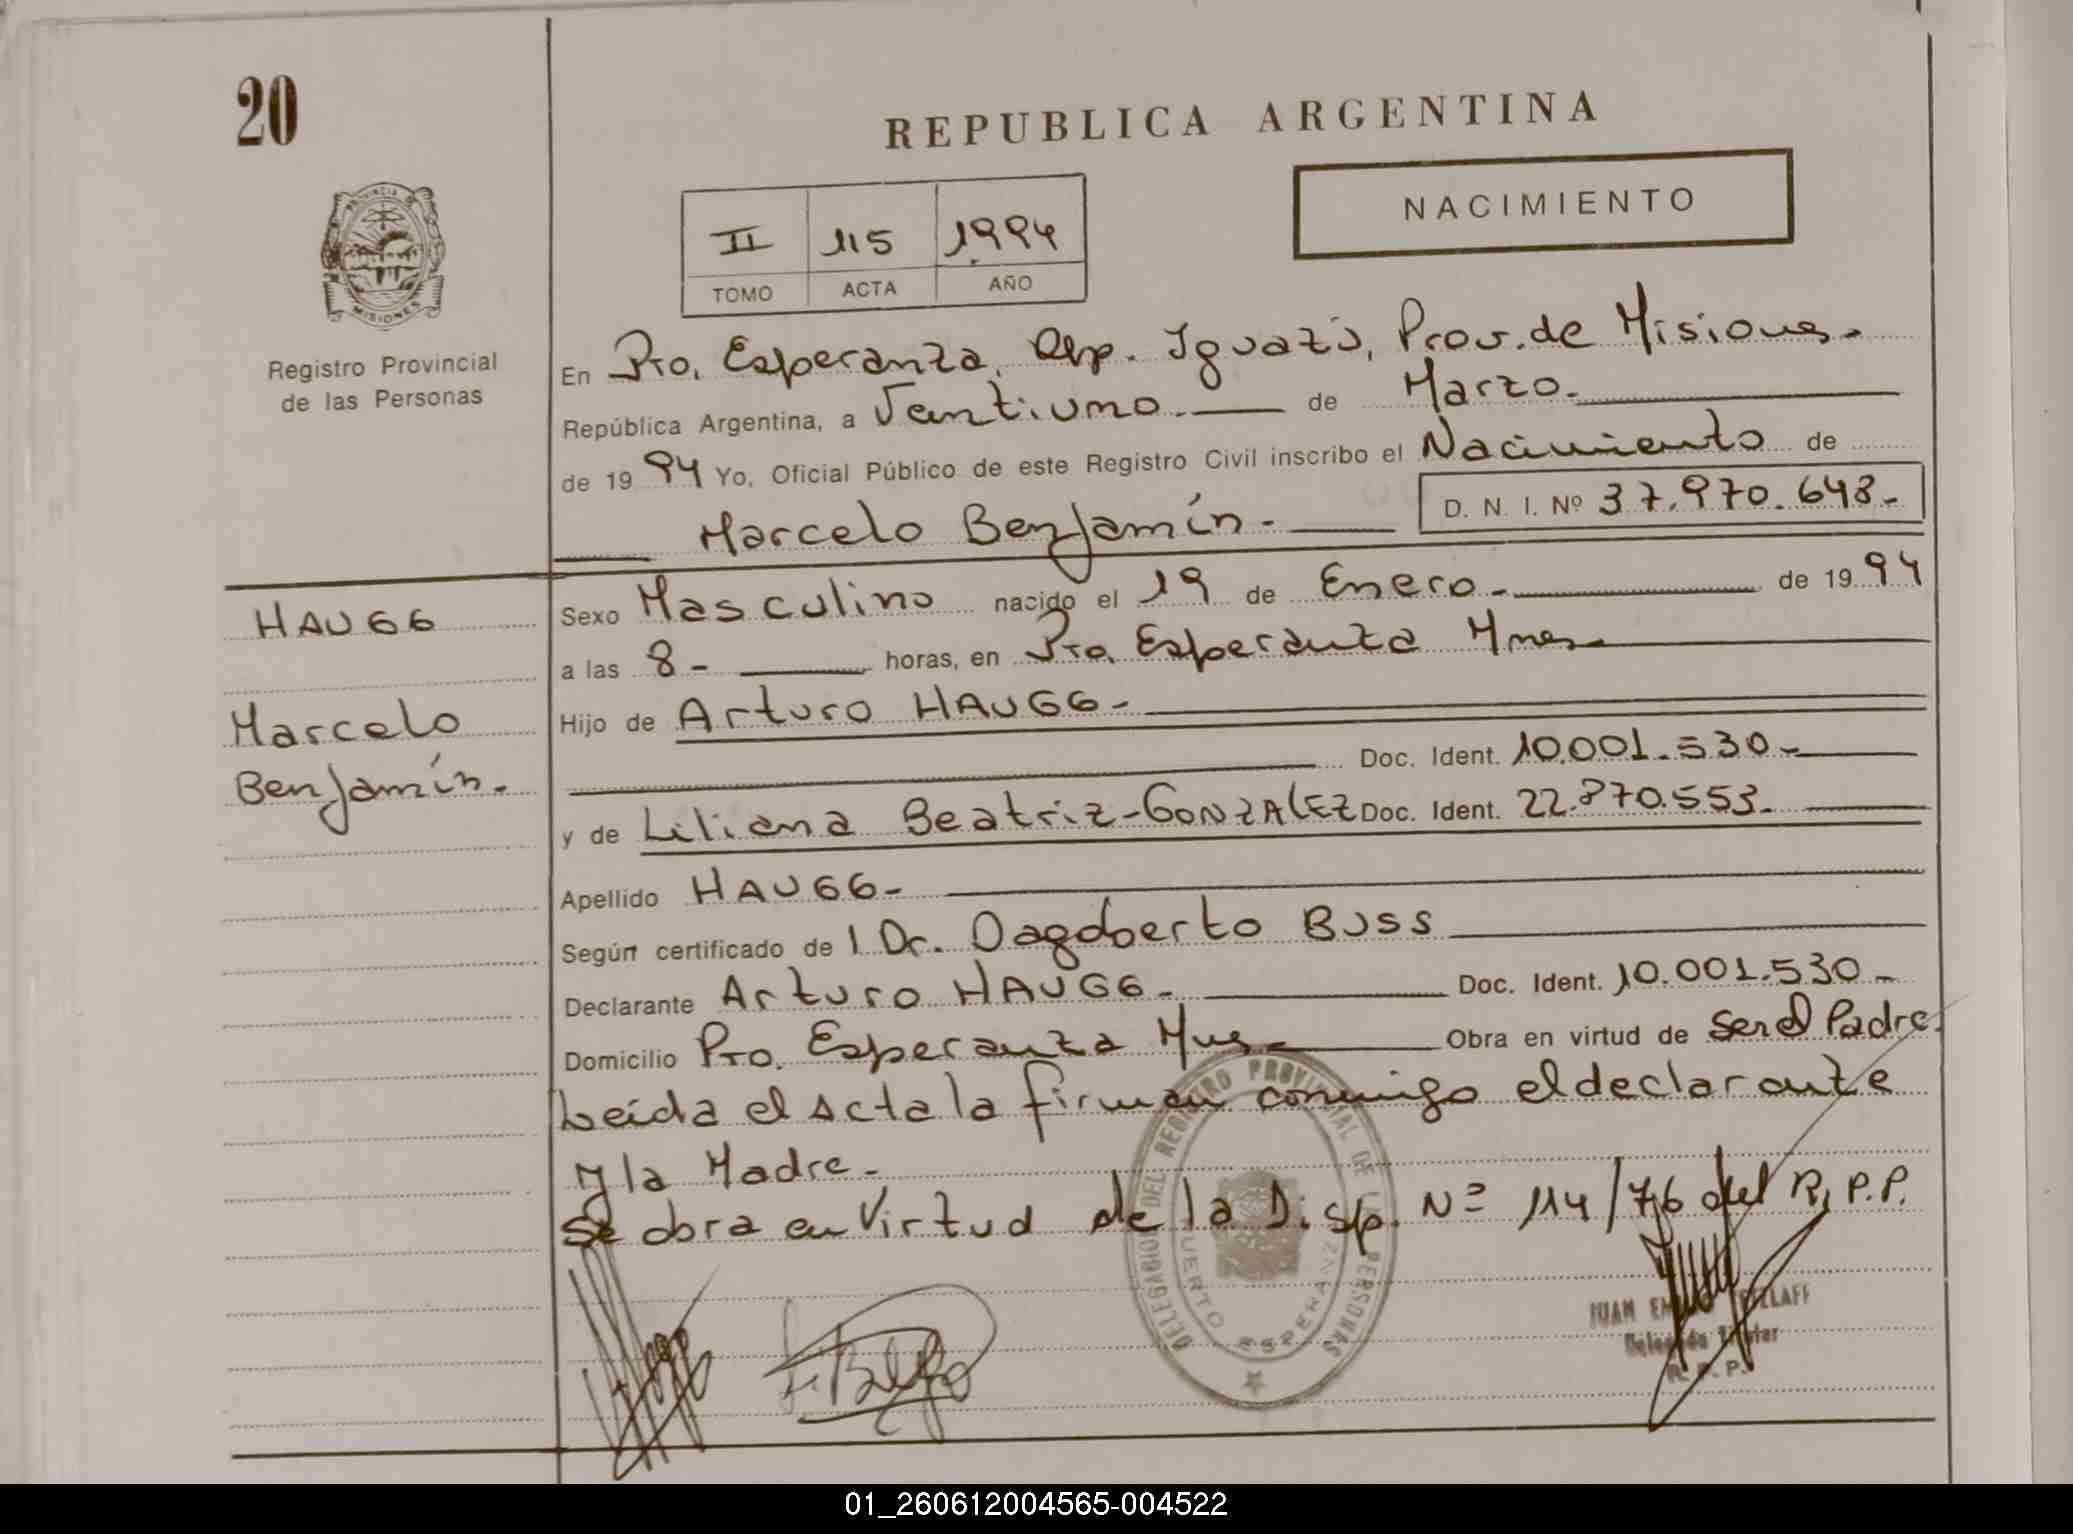 20
REPUBLICA ARGENTINA
PROVINCIA D MISIONES
II 115 1994
TOMO ACTA AÑO
NACIMIENTO
Registro Provincial
de las Personas
En Pto. Esperanza, Dep. Iguazú, Prov. de Misiones.-
República Argentina, a Ventiuno. de Marzo.
de 19 94 Yo, Oficial Público de este Registro Civil inscribo el Nacimiento de
Marcelo Benjamín.- D. N. I. Nº 37.970.648.-
HAUGG
Marcelo
Benjamín.-
Sexo Masculino nacido el 19 de Enero.- de 19 94
a las 8- horas, en Pto. Esperanza Mnes.
Hijo de Arturo HAUGG-
Doc. Ident. 10.001.530.-
y de Liliana Beatriz-GONZALEZ Doc. Ident. 22.870.553.
Apellido HAUGG-
Según certificado de l Dr. Dagoberto BUSS
Declarante Arturo HAUGG- Doc. Ident. 10.001.530-
Domicilio Pto. Esperanza Mns. Obra en virtud de ser el Padre.
Leída el acta la firman conmigo el declarante
y la Madre.-
Se obra en Virtud de la Disp. Nº 114/76 del R.P.P.
DELEGACION DEL REGISTRO PROVINCIAL DE LAS PERSONAS
PUERTO ESPERANZA
JUAN
Delegado Titular
R. P. P.
01_260612004565-004522